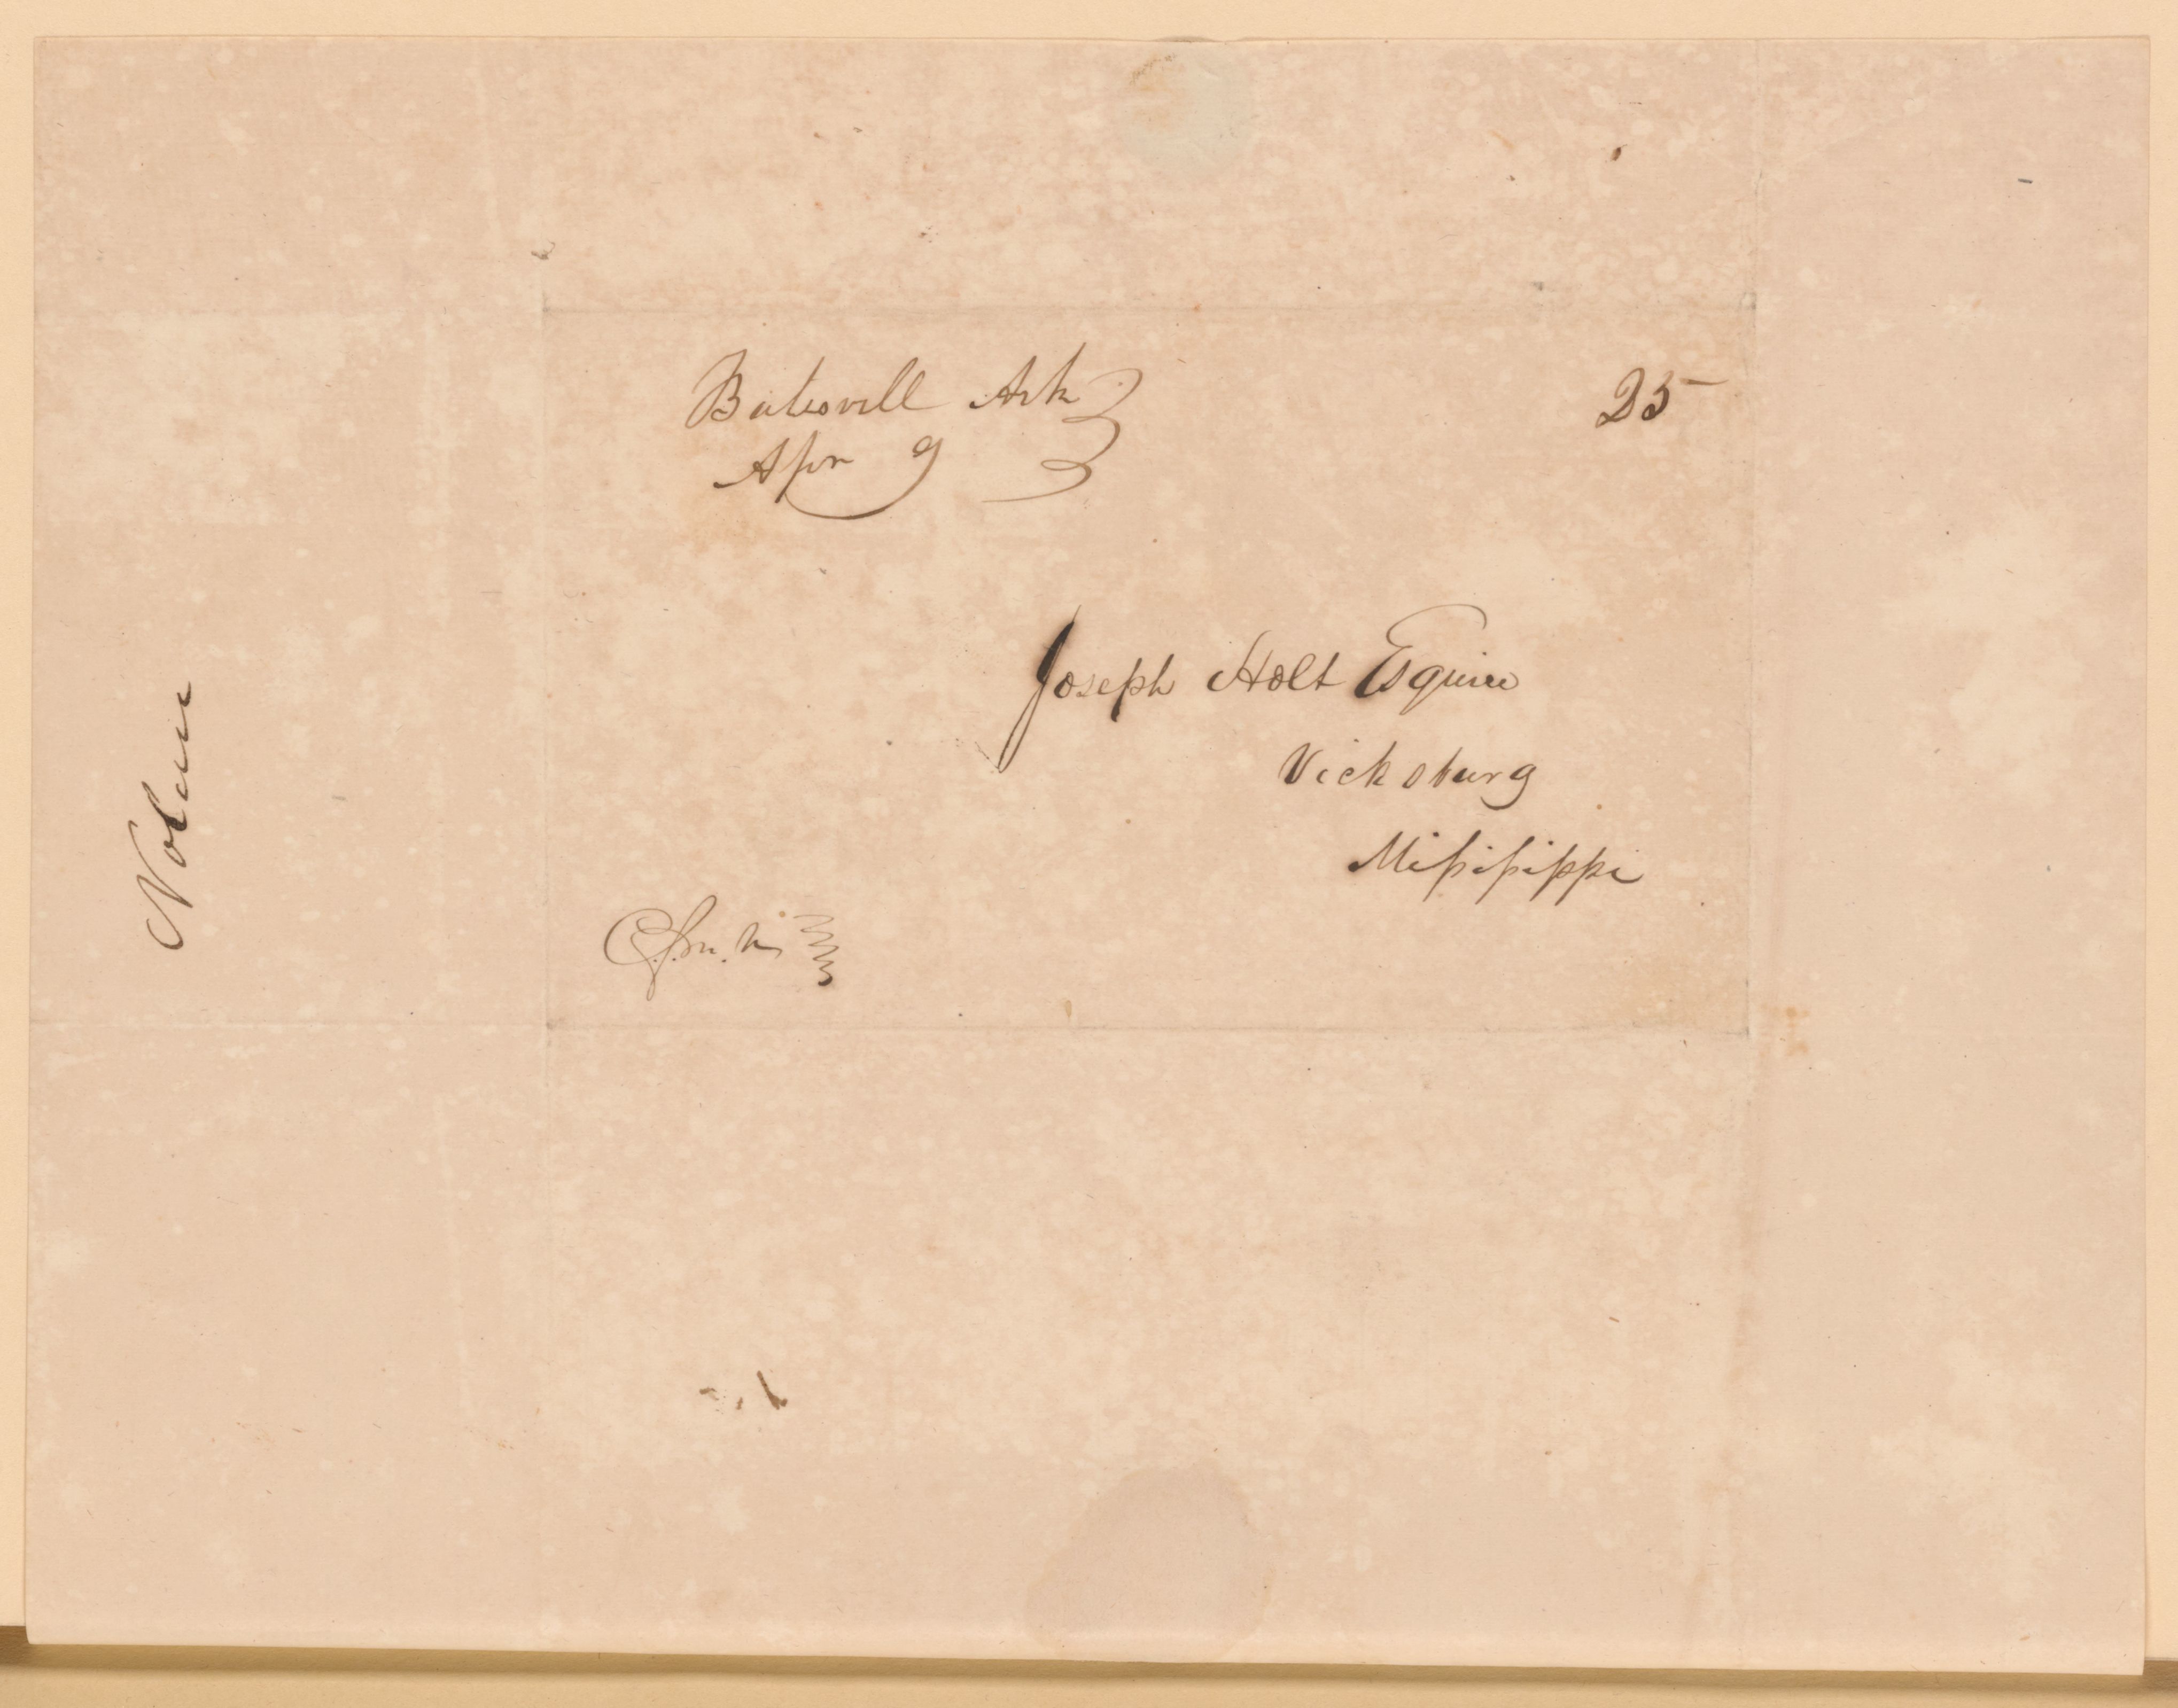 Batesvill Ark
Apr 9
25
Joseph Holt Esquire
Vicksburg
Missisippi